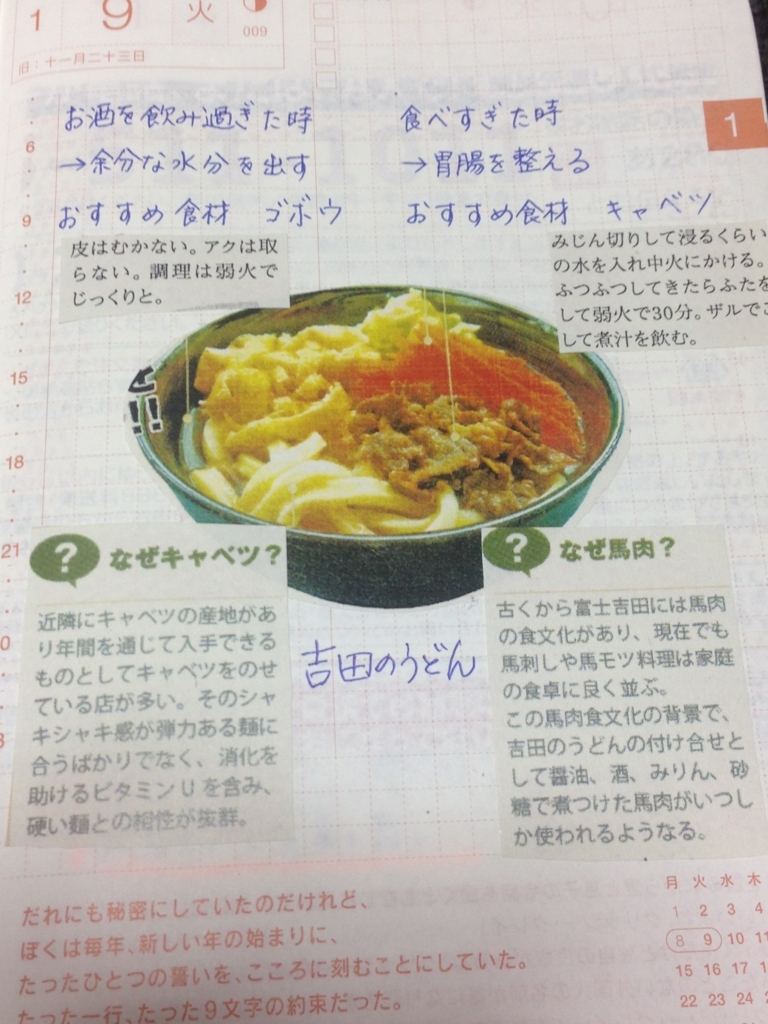 1 9 火
009
旧：十一月二十三日
1
お酒を飲み過ぎた時
→余分な水分を出す
おすすめ食材 ゴボウ
皮はむかない。アクは取
らない。調理は弱火で
じっくりと。
食べすぎた時
→胃腸を整える
おすすめ食材 キャベツ
みじん切りして浸るくらい
の水を入れ中火にかける。
ふつふつしてきたらふたを
して弱火で30分。ザルでこ
して煮汁を飲む。
6
9
12
15
18
21
0
3
!!
? なぜキャベツ?
近隣にキャベツの産地があ
り年間を通じて入手できる
ものとしてキャベツをのせ
ている店が多い。そのシャ
キシャキ感が弾力ある麺に
合うばかりでなく、消化を
助けるビタミンUを含み、
硬い麺との相性が抜群。
吉田のうどん
? なぜ馬肉?
古くから富士吉田には馬肉
の食文化があり、現在でも
馬刺しや馬モツ料理は家庭
の食卓に良く並ぶ。
この馬肉食文化の背景で、
吉田のうどんの付け合せと
して醤油、酒、みりん、砂
糖で煮つけた馬肉がいつし
か使われるようなる。
だれにも秘密にしていたのだけれど、
ぼくは毎年、新しい年の始まりに、
たったひとつの誓いを、こころに刻むことにしていた。
たった一行、たった9文字の約束だった。
月 火 水 木
1 2 3 4
8 9 10 11
15 16 17 18
22 23 24 25